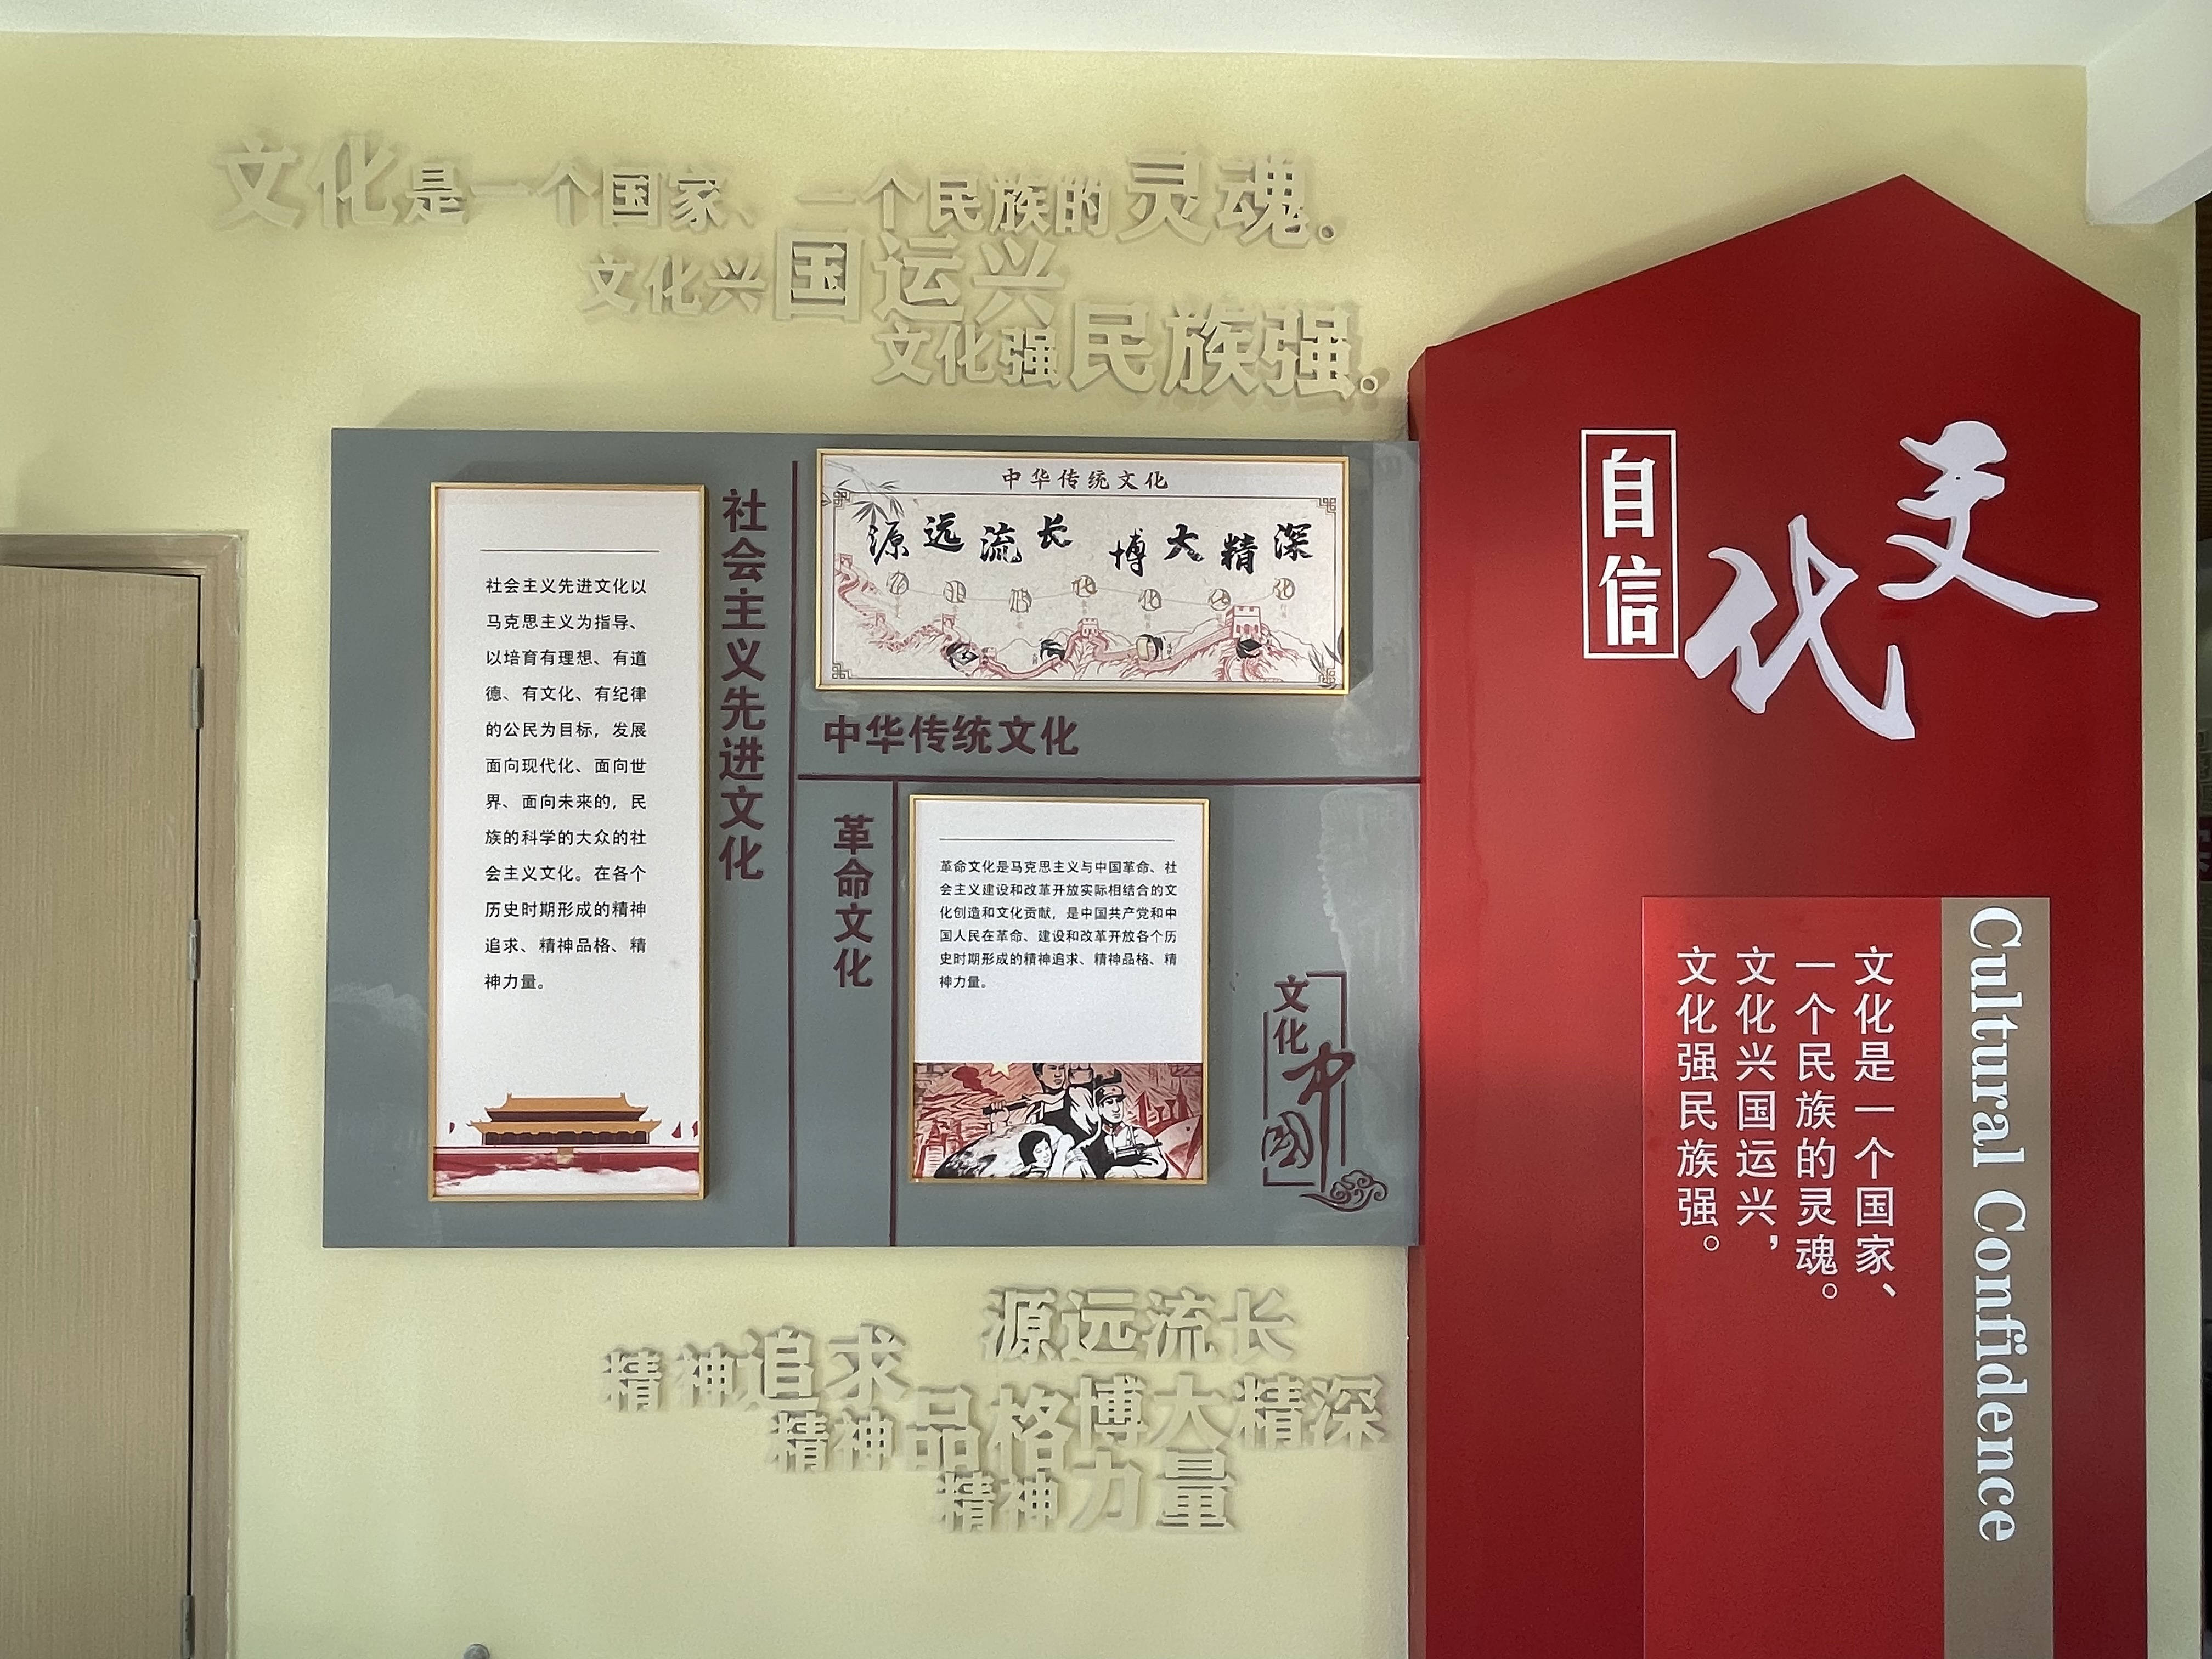 文化是一个国家、一个民族的灵魂。
文化兴国运兴
文化强民族强。
社会主义先进文化以
马克思主义为指导、
以培育有理想、有道
德、有文化、有纪律
的公民为目标，发展
面向现代化、面向世
界、面向未来的，民
族的科学的大众的社
会主义文化。在各个
历史时期形成的精神
追求、精神品格、精
神力量。
社会主义先进文化
中华传统文化
源远流长 博大精深
中华传统文化
革命文化
革命文化是马克思主义与中国革命、社
会主义建设和改革开放实际相结合的文
化创造和文化贡献，是中国共产党和中
国人民在革命、建设和改革开放各个历
史时期形成的精神追求、精神品格、精
神力量。
文化
中國
源远流长
精神追求
博大精深
精神品格
精神力量
文化
自信
Cultural Confidence
文化是一个国家、
一个民族的灵魂。
文化兴国运兴，
文化强民族强。